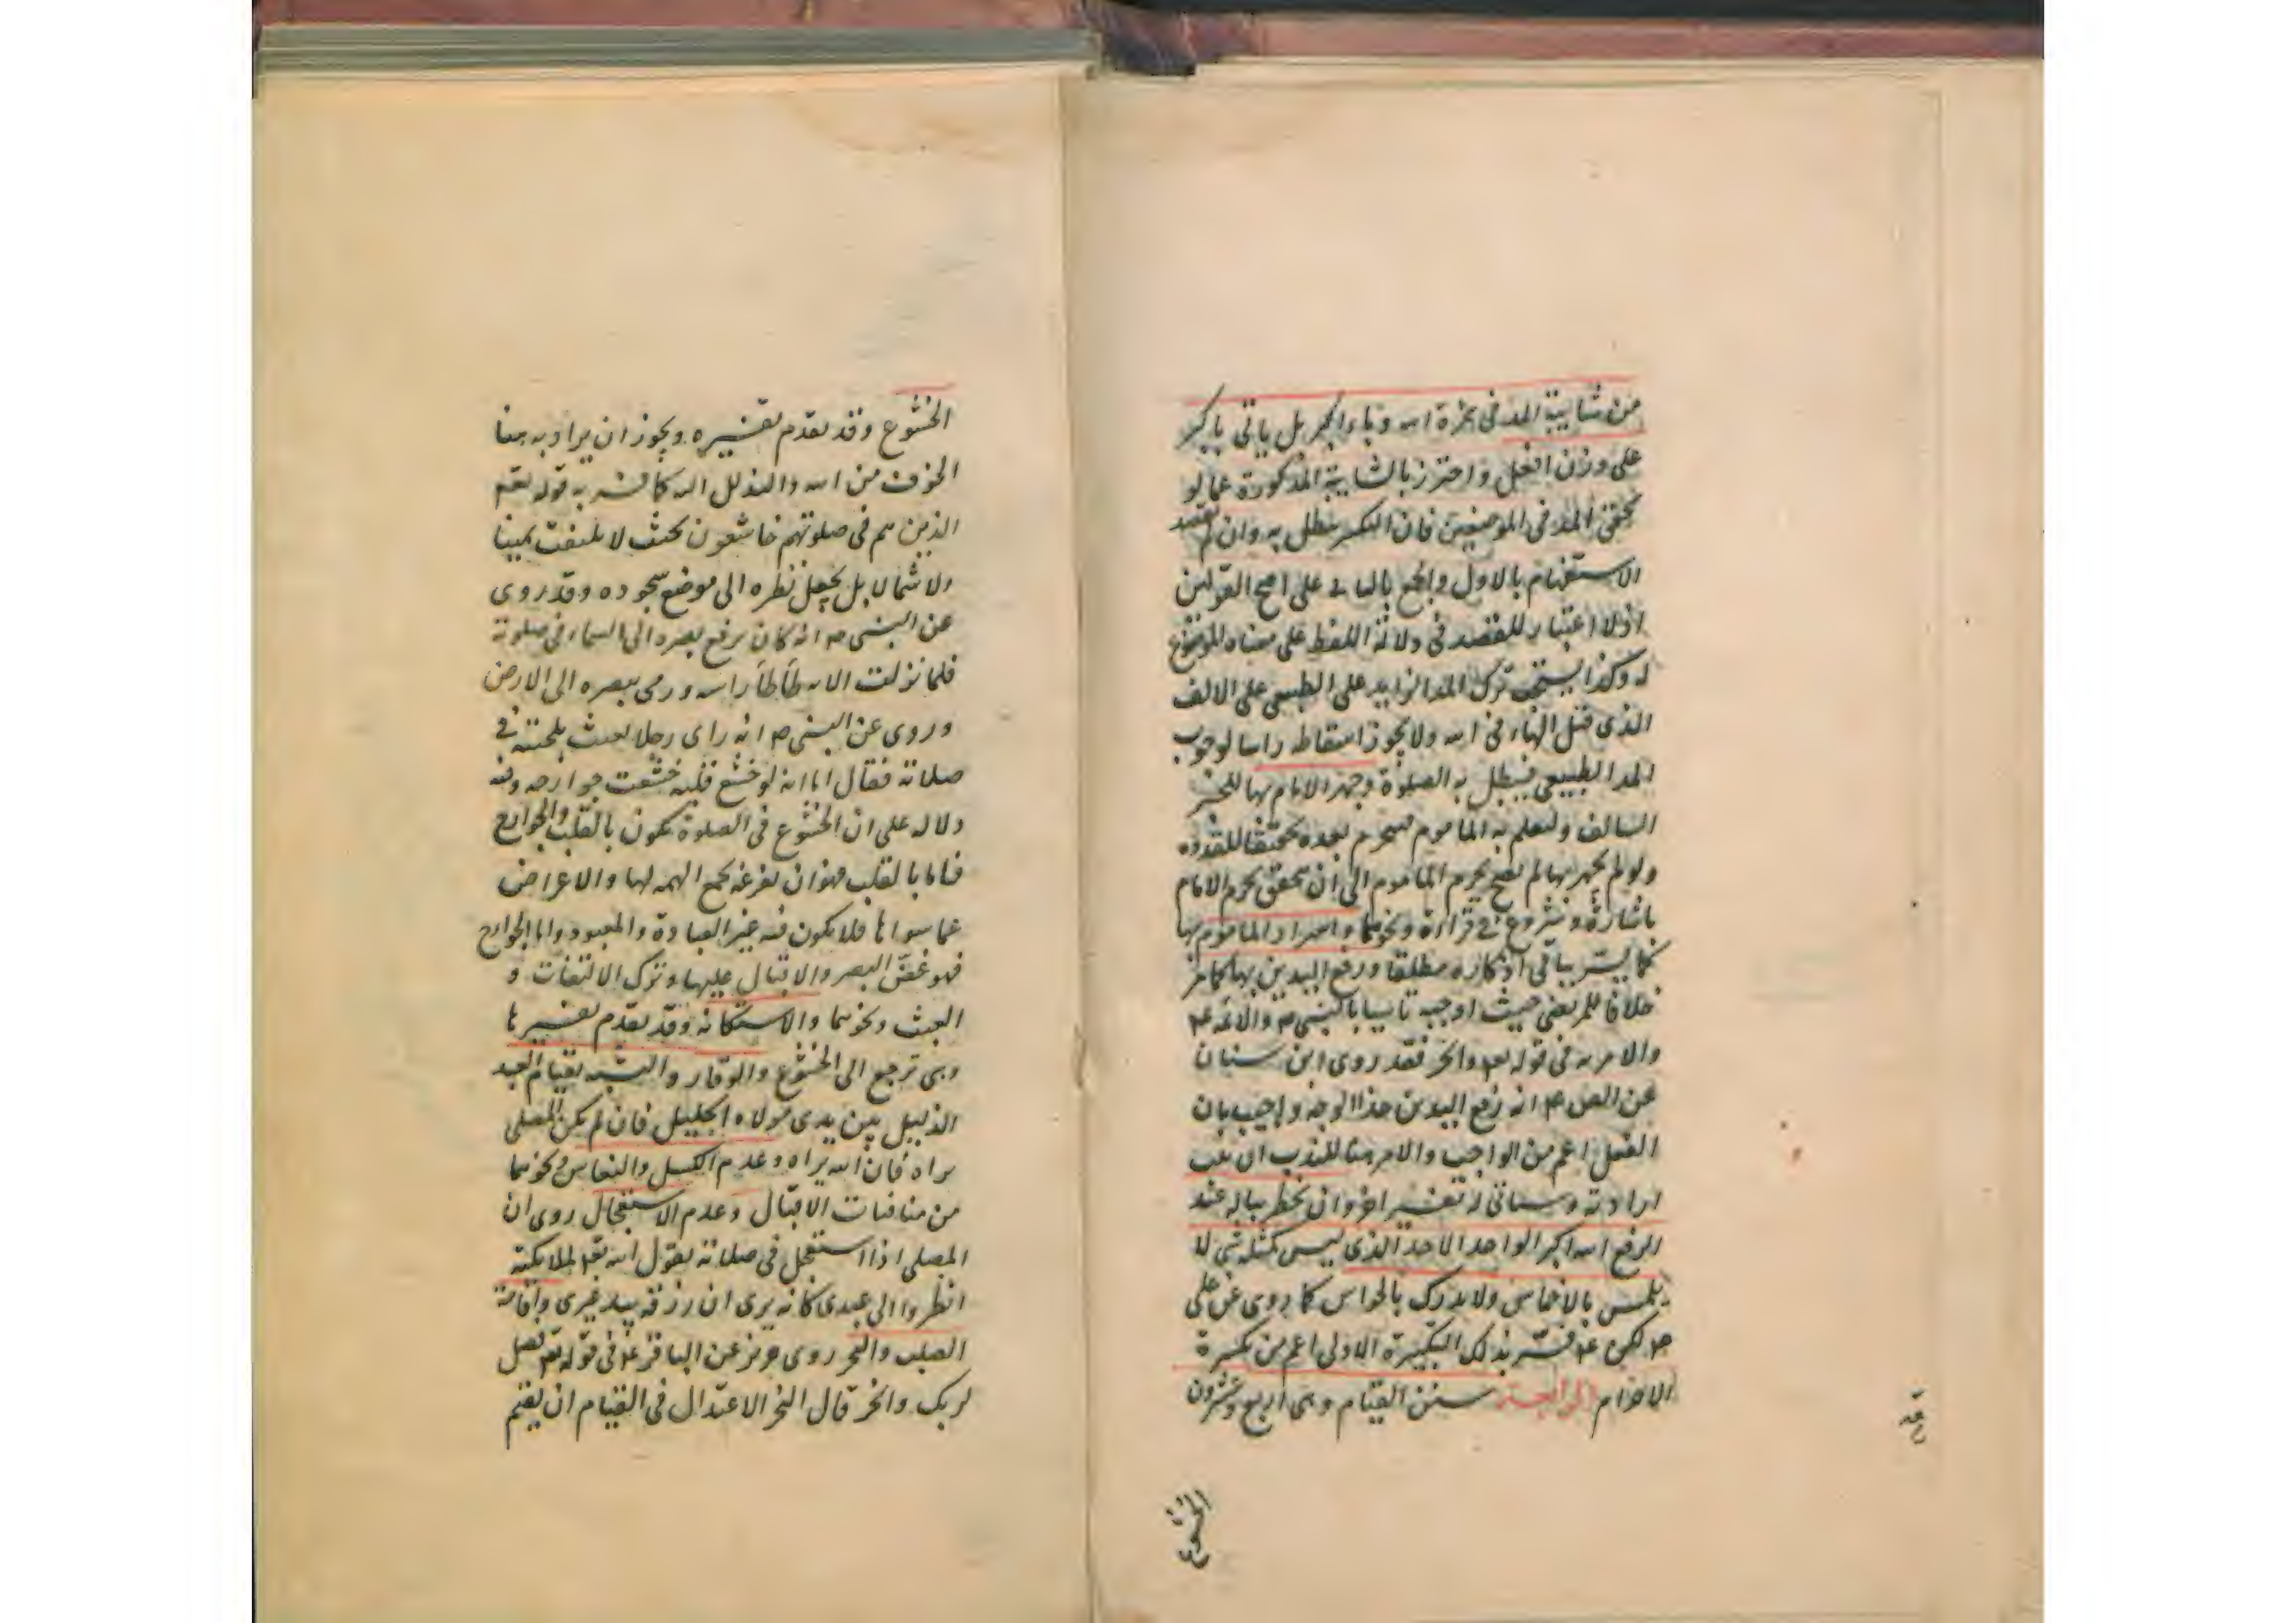 من شايبة المد في همزة الله وباء اكبر بل ياتي باكبر
على وزن افعل واحترز بالشايبة المذكورة عما لو
تحقق المد في الموضعين فان التكبير يبطل به وان لم يقصد
الاستفهام بالاول والجمع بالثاني على اصح القولين
اذ لا اعتبار للقصد في دلالة اللفظ على معناه الموضوع
له وكذا يستحب ترك المد الزايد على الطبيعي على الالف
الذي قبل الهاء في الله ولا يجوز اسقاطه راسا لوجوب
المد الطبيعي فيبطل به الصلوة وجهر الامام بها للخبر
السالف وليعلم به الماموم فيحرم بعده تحقيقا للقدوه
ولو لم يجهر بها لم يصح تحريم الماموم الى ان يتحقق تحرم الامام
باشارة وشروع في قراءة ونحوهما واسرار الماموم بها
كما يسر بباقي اذكاره مطلقا ورفع اليدين بها كما مر
خلافا للمرتضى حيث اوجبه تاسيا بالنبي ص والائمة ع
والامر به في قوله تعالى وانحر فقد روى ابن سنان
عن الص ع انه رفع اليدين حذا الوجه واجيب بان
الفعل اعم من الواجب والامر هنا للندب ان ثبت
ارادته وسياتي له تفسير اخر وان يخطر بباله عند
الرفع الله اكبر الواحد الاحد الذي ليس كمثله شي لا
يلمس بالاخماس ولا يدرك بالحواس كما روى عن علي
ع لكن ع فسر بذلك التكبيرة الاولى اعم من تكبيرة
الاحرام الرابعة سنن القيام وهي اربع وعشرون
الخشوع
الخشوع وقد تقدم تفسيره ويجوز ان يراد به هنا
الخوف من الله والتذلل اليه كما فسر به قوله تعم
الذين هم في صلوتهم خاشعون بحيث لا يلتفت يمينا
ولا شمالا بل يجعل نظره الى موضع سجوده وقد روى
عن النبي ص انه كان يرفع بصره الى السماء في صلوته
فلما نزلت الايه طأطأ راسه ورمى ببصره الى الارض
وروى عن النبي ص انه راى رجلا يعبث بلحيته في
صلاته فقال اما انه لو خشع قلبه خشعت جوارحه وفيه
دلاله على ان الخشوع في الصلوة يكون بالقلب والجوارح
فاما بالقلب فهو ان يفرغه بجمع الهمه لها والاعراض
عما سواها فلا يكون فيه غير العبادة والمعبود واما الجوارح
فهو غض البصر والاقبال عليها وترك الالتفات و
العبث ونحوهما والاستكانه وقد تقدم تفسيرها
وهي ترجع الى الخشوع والوقار والتشبه بقيام العبد
الذليل بين يدي مولاه الجليل فان لم يكن المصلي
يراه فان الله يراه وعدم الكسل والنعاس ونحوهما
من منافيات الاقبال وعدم الاستعجال روى ان
المصلي اذا استعجل في صلاته يقول الله تعم لملائكته
انظروا الى عبدي كانه يرى ان رزقه بيد غيري واقامة
الصلب والنحر روى حريز عن الباقر ع في قوله تعم فصل
لربك وانحر قال النحر الاعتدال في القيام ان يقيم